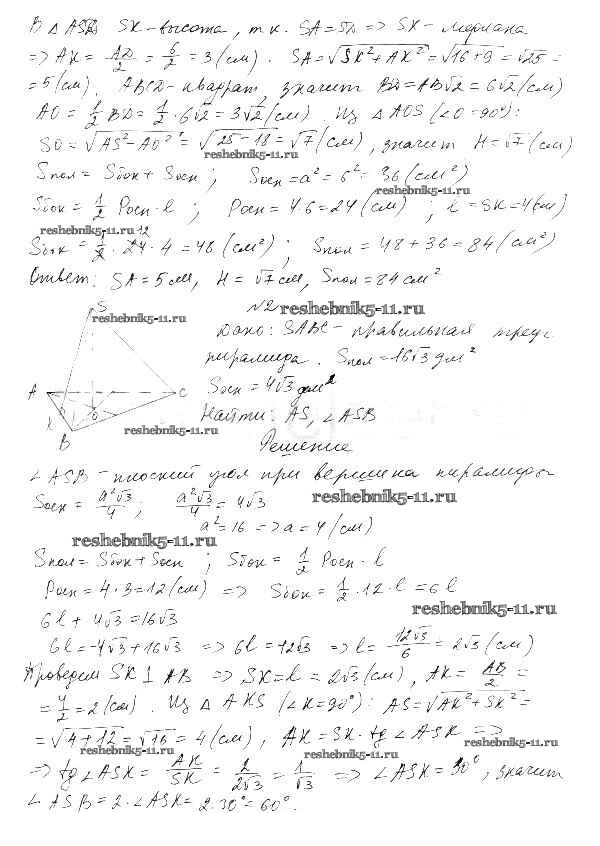 В △ ASD SK - высота, т.к. SA=SD => SK - медиана
=> AK = AD/2 = 6/2 = 3 (см). SA=√SK²+AK² = √16+9 = √25 =
= 5 (см). ABCD - квадрат, значит BD=AB√2 = 6√2 (см)
AO = 1/2 BD = 1/2 · 6√2 = 3√2 (см). Из △ AOS (∠O=90°):
SO = √AS²-AO² = √25-18 = √7 (см), значит H=√7 (см)
reshebnik5-11.ru
Sпол = Sбок + Sосн ; Sосн = a² = 6² = 36 (см²)
reshebnik5-11.ru
Sбок = 1/2 Pосн · l ; Pосн = 4·6 = 24 (см) ; l = SK = 4 (см)
reshebnik5-11.ru 12
Sбок = 1/2 · 24 · 4 = 48 (см²) ; Sпол = 48 + 36 = 84 (см²)
Ответ: SA = 5 см, H = √7 см, Sпол = 84 см²
S
№2 reshebnik5-11.ru
reshebnik5-11.ru
Дано: SABC - правильная треуг.
пирамида. Sпол = 16√3 дм²
A C
Sосн = 4√3 дм²
O
K
Найти: AS, ∠ASB
B
reshebnik5-11.ru
Решение
∠ ASB - плоский угол при вершине пирамиды
Sосн = a²√3/4 ; a²√3/4 = 4√3
reshebnik5-11.ru
a² = 16 => a = 4 (см)
reshebnik5-11.ru
Sпол = Sбок + Sосн ; Sбок = 1/2 Pосн · l
Pосн = 4 · 3 = 12 (см) => Sбок = 1/2 · 12 · l = 6l
reshebnik5-11.ru
6l + 4√3 = 16√3
6l = -4√3 + 16√3 => 6l = 12√3 => l = 12√3/6 = 2√3 (см)
Проведем SK ⊥ AB => SK = l = 2√3 (см), AK = AB/2 =
= 4/2 = 2 (см). Из △ AKS (∠K=90°): AS = √AK² + SK² =
= √4+12 = √16 = 4 (см), AK = SK · tg ∠ASK =>
reshebnik5-11.ru reshebnik5-11.ru reshebnik5-11.ru
=> tg ∠ASK = AK/SK = 2/2√3 = 1/√3 => ∠ASK = 30°, значит
∠ ASB = 2 · ∠ASK = 2 · 30° = 60°.